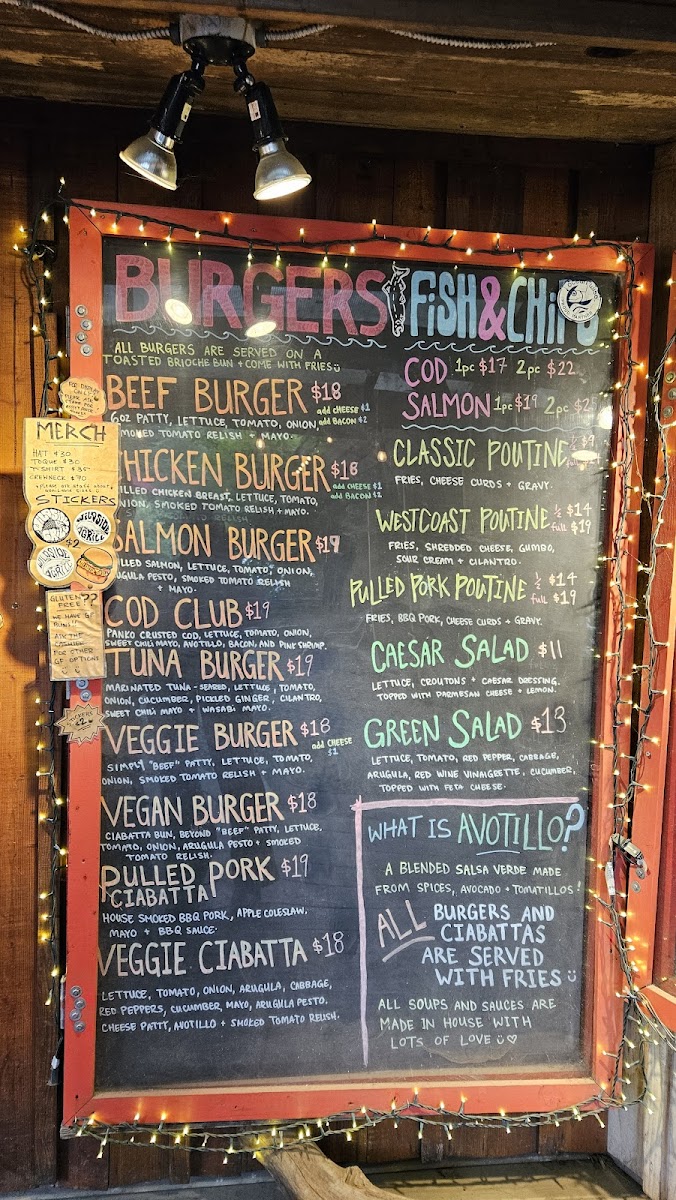 BURGERS
ALL BURGERS ARE SERVED ON A
TOASTED BRIOCHE BUN + COME WITH FRIES
BEEF BURGER $18
6oz PATTY, LETTUCE, TOMATO, ONION,
add CHEESE $1
SMOKED TOMATO RELISH + MAYO.
add BACON $2
CHICKEN BURGER $18
GRILLED CHICKEN BREAST, LETTUCE, TOMATO,
add CHEESE $1
ONION, SMOKED TOMATO RELISH + MAYO.
add BACON $2
SALMON BURGER $19
GRILLED SALMON, LETTUCE, TOMATO, ONION,
ARUGULA PESTO, SMOKED TOMATO RELISH
+ MAYO.
COD CLUB $19
PANKO CRUSTED COD, LETTUCE, TOMATO, ONION,
SWEET CHILI MAYO, AVOTILLO, BACON, AND PINK SHRIMP.
TUNA BURGER $19
MARINATED TUNA - SEARED, LETTUCE, TOMATO,
ONION, CUCUMBER, PICKLED GINGER, CILANTRO,
SWEET CHILI MAYO + WASABI MAYO.
VEGGIE BURGER $18
add CHEESE $1
SIMPLY "BEEF" PATTY, LETTUCE, TOMATO,
ONION, SMOKED TOMATO RELISH + MAYO.
VEGAN BURGER $18
CIABATTA BUN, BEYOND "BEEF" PATTY, LETTUCE,
TOMATO, ONION, ARUGULA PESTO + SMOKED
TOMATO RELISH.
PULLED PORK $19
CIABATTA
HOUSE SMOKED BBQ PORK, APPLE COLESLAW,
MAYO + BBQ SAUCE.
VEGGIE CIABATTA $18
LETTUCE, TOMATO, ONION, ARUGULA, CABBAGE,
RED PEPPERS, CUCUMBER, MAYO, ARUGULA PESTO,
CHEESE PATTY, AVOTILLO + SMOKED TOMATO RELISH.
FISH & CHIPS
COD 1pc $17 2pc $22
SALMON 1pc $19 2pc
CLASSIC POUTINE
FRIES, CHEESE CURDS + GRAVY.
WESTCOAST POUTINE ½ $14
full $19
FRIES, SHREDDED CHEESE, GUMBO,
SOUR CREAM + CILANTRO.
PULLED PORK POUTINE ½ $14
full $19
FRIES, BBQ PORK, CHEESE CURDS + GRAVY.
CAESAR SALAD $11
LETTUCE, CROUTONS + CAESAR DRESSING.
TOPPED WITH PARMESAN CHEESE + LEMON.
GREEN SALAD $13
LETTUCE, TOMATO, RED PEPPER, CABBAGE,
ARUGULA, RED WINE VINAIGRETTE, CUCUMBER,
TOPPED WITH FETA CHEESE.
WHAT IS AVOTILLO?
A BLENDED SALSA VERDE MADE
FROM SPICES, AVOCADO + TOMATILLOS!
ALL BURGERS AND
CIABATTAS
ARE SERVED
WITH FRIES
ALL SOUPS AND SAUCES ARE
MADE IN HOUSE WITH
LOTS OF LOVE
MERCH
HAT $30
TOQUE $30
T-SHIRT $35
CREWNECK $70
STICKERS
$2
WILDSIDE
GRILL
WILDSIDE
GRILL
GLUTEN
FREE??
WE HAVE GF
BUNS!!
ASK THE
CASHIER
FOR OTHER
GF OPTIONS
STICKERS
$2